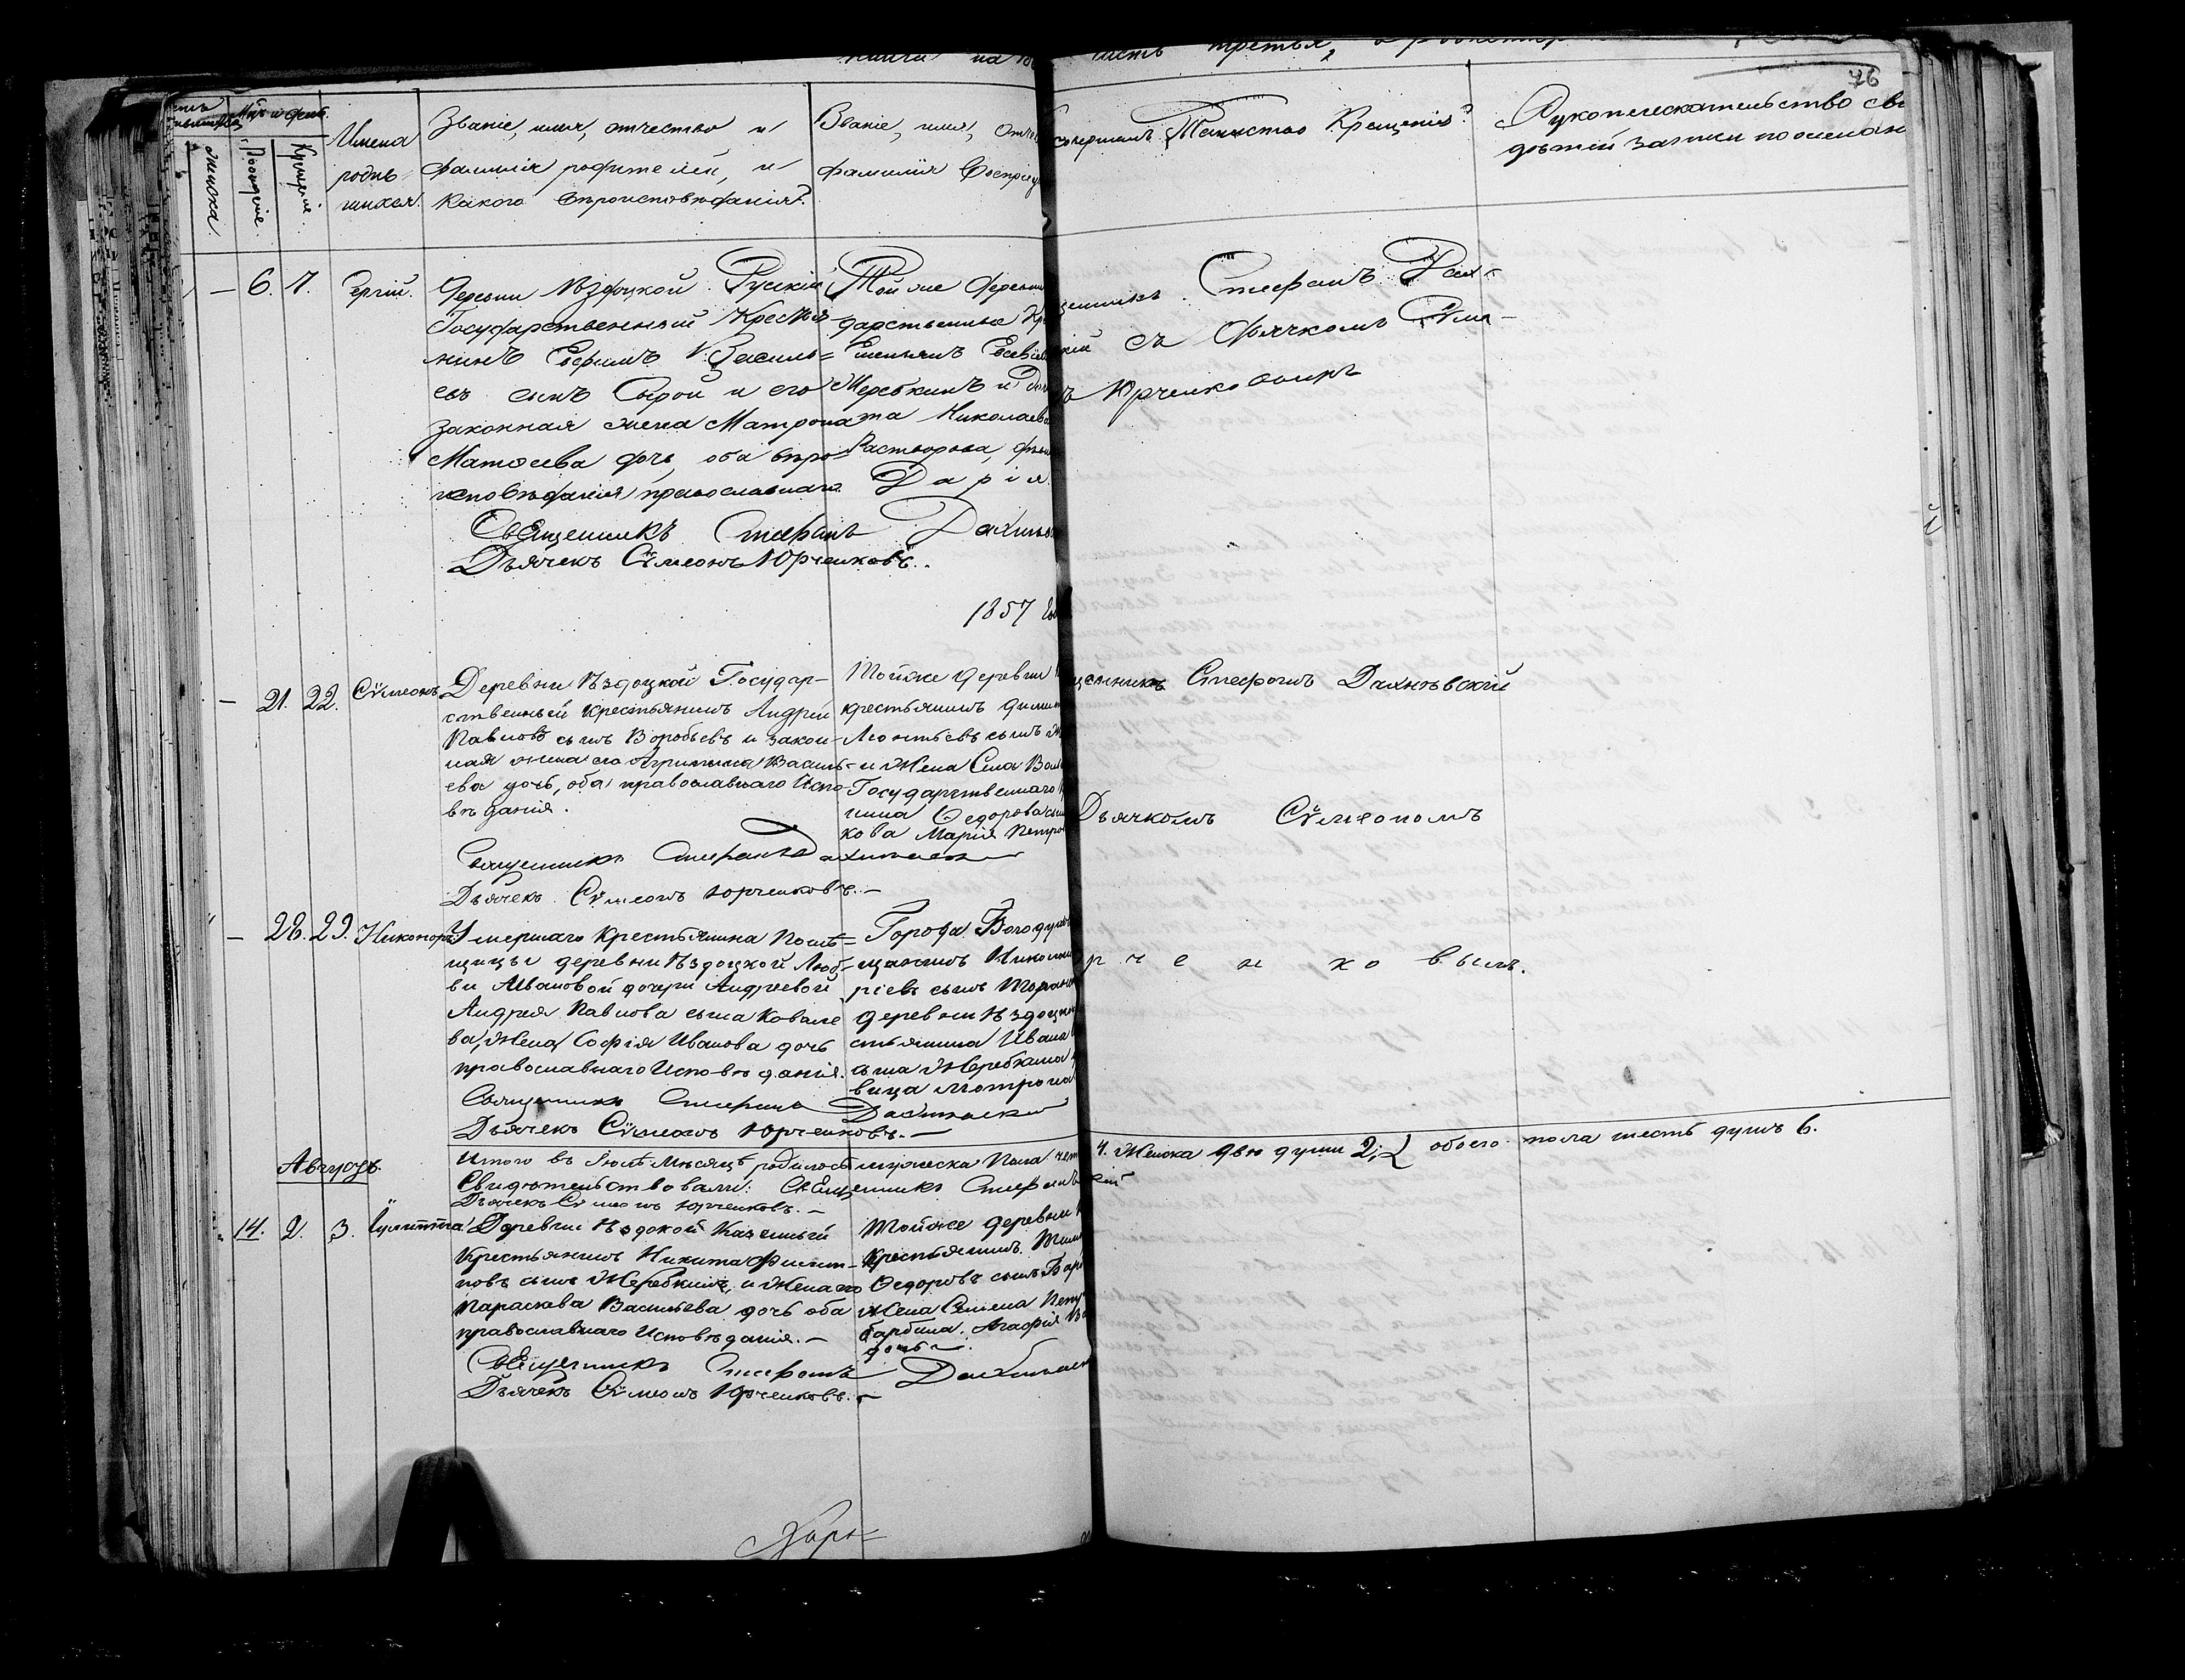 часть третья,
76
Мцъ и день.
женска.
Рожденіе.
Крещеніе.
Имена
родив-
шихся.
Званіе, имя, отчество и
фамилія родителей, и
какого вѣроисповѣданія?
Званіе, имя, отче
фамилія воспріе
совершалъ Таинство Крещенія?
Рукоприкладство сви
дѣтелей записи по желан
— 6. 7.
Деревни Ѣздоцкой
Государственный Крестья-
нинъ Ефимъ Василь=
евъ сынъ Сырой и его
законная жена Матрона
Матѳеева дочь, оба вѣро-
исповѣданія православнаго.
Той же деревни
дарственные Кр
Емельянъ Евсѣев
Жеребкинъ и
Николаева
Растворова, дѣв
Дарія.
щенникъ Стефанъ Дах-
кій съ дьячкомъ Сѵме-
ъ Юрченковымъ
Священникъ Стефанъ
Дьячекъ Сѵмеонъ Юрченковъ.
1857
— 21. 22. Сѵмеонъ
Деревни Ѣздоцкой Государ-
ственный крестьянинъ Андрей
Павловъ сынъ Воробьевъ и закон-
ная жена его Агрипина Василь-
ева дочь, оба православнаго Испо-
вѣданія.
Тойже деревни
крестьянинъ
Леонтьевъ сынъ
и Жена Села
Государственнаго
нина Ѳедорова сын
кова Марія Петро
щенникъ Стефанъ Дахнѣвскій
Дьячкомъ Сѵмеономъ
Священникъ Стефанъ
Дьячекъ Сѵмеонъ Юрченковъ. —
— 28. 29. Никаноръ
Умершаго Крестьянина Помѣ=
щицы деревни Ѣздоцкой Люб-
ви Ивановой дочери Андреевой
Андрея Павлова сына Ковале
ва, Жена Софія Иванова дочь
православнаго Исповѣданія.
Города Богодухо
щанинъ Николай
ріевъ сынъ
деревни Ѣздоцко
стьянина Ивана
сына Жеребкина
вица Мотрона
р ч е н ко вымъ.
Священникъ Стефанъ
Дьячекъ Сѵмеонъ Юрченковъ. —
Итого въ Іюлѣ Мѣсяцѣ родилось мужеска Пола чет
4. Женска двѣ души 2; обоего пола шесть душъ 6.
Свидѣтельствовали: Священникъ Стефанъ
кій
Дьячекъ Сѵмеонъ Юрченковъ. —
Августъ.
14. 2. 3.
Деревни Ѣздокой Казенный
Крестьянинъ Никита Филип-
повъ сынъ Жеребкинъ, и Жена его
Параскева Васильева дочь оба
православнаго Исповѣданія. —
Тойже деревни
Крестьянинъ
Ѳедоровъ сынъ
Жена Семена Пет
Гарбина. Агафія Ва
дочь.
Священникъ Стефанъ
Дьячекъ Сѵмеонъ Юрченковъ. —
Харь=